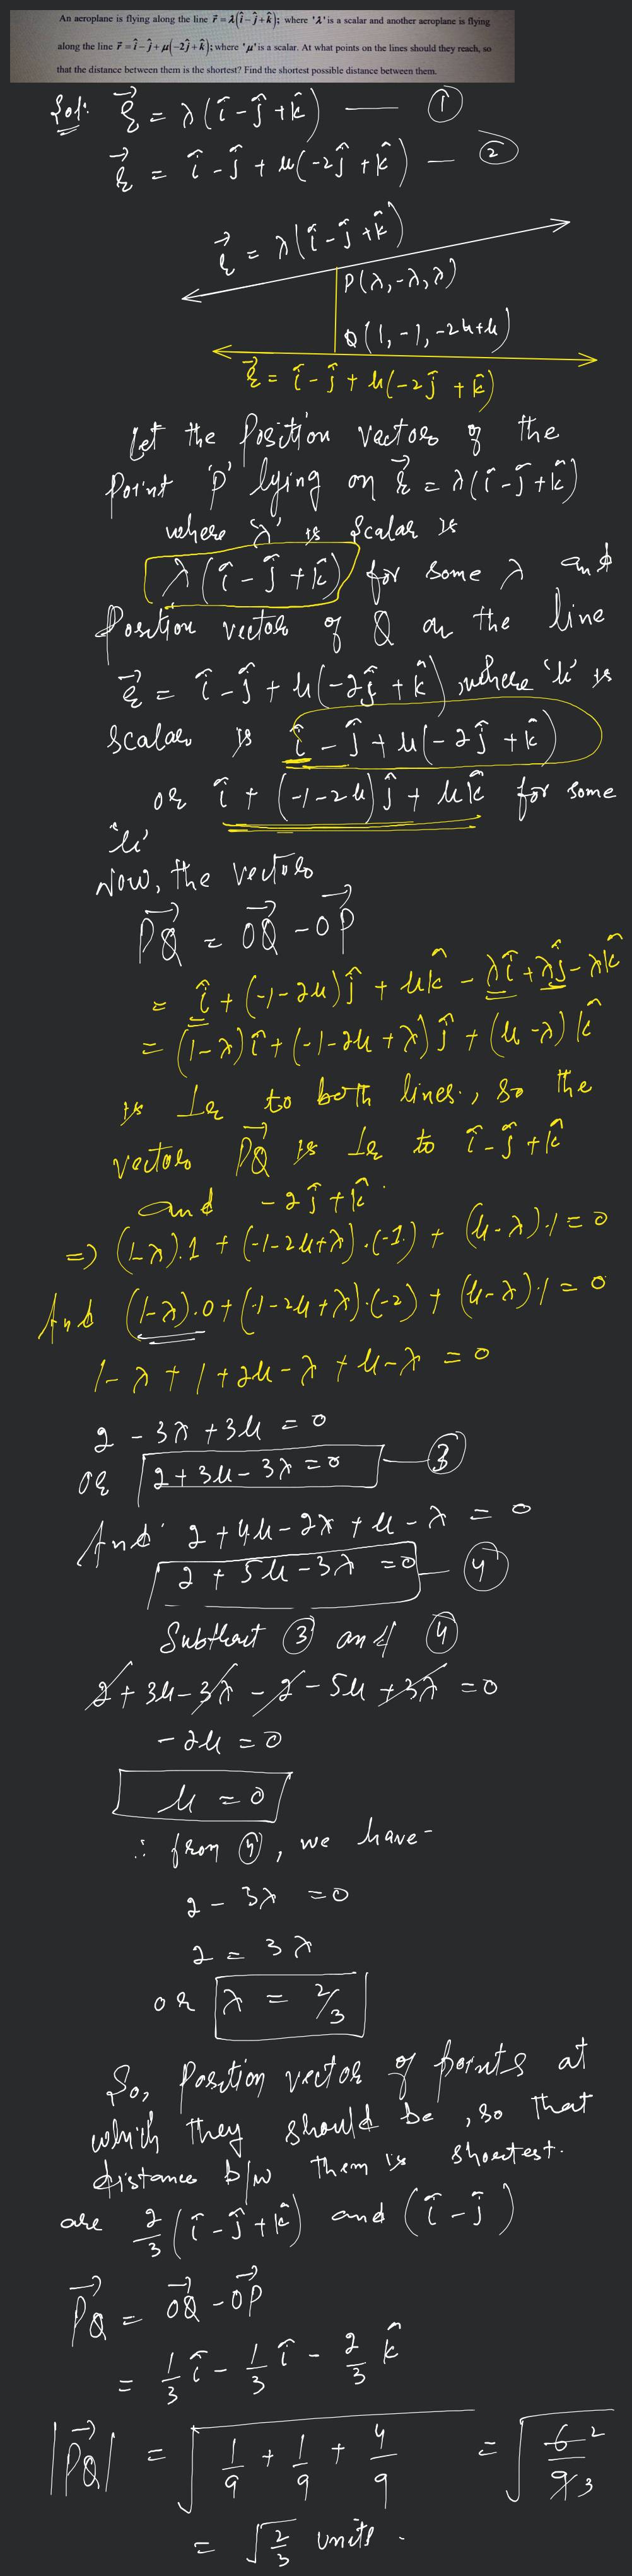 An aeroplane is flying along the line r⃗ = λ(î - ĵ + k̂); where 'λ' is a scalar and another aeroplane is flying
along the line r⃗ = î - ĵ + μ(-2ĵ + k̂); where 'μ' is a scalar. At what points on the lines should they reach, so
that the distance between them is the shortest? Find the shortest possible distance between them.
Sol: r⃗ = λ(î - ĵ + k̂) — ①
r⃗ = î - ĵ + μ(-2ĵ + k̂) — ②
r⃗ = λ(î - ĵ + k̂)
P(λ, -λ, λ)
Q(1, -1, -2μ+μ)
r⃗ = î - ĵ + μ(-2ĵ + k̂)
Let the Position vector of the
Point 'P' lying on r⃗ = λ(î - ĵ + k̂)
where 'λ' is Scalar is
λ(î - ĵ + k̂) for some λ and
Position vector of Q on the line
r⃗ = î - ĵ + μ(-2ĵ + k̂), where 'μ' is
Scalar is î - ĵ + μ(-2ĵ + k̂)
or î + (-1-2μ)ĵ + μk̂ for some
'μ'
Now, the vector
PQ⃗ = OQ⃗ - OP⃗
= î + (-1-2μ)ĵ + μk̂ - λî + λĵ - λk̂
= (1-λ)î + (-1-2μ+λ)ĵ + (μ-λ)k̂
is ⊥r to both lines, so the
vector PQ⃗ is ⊥r to î - ĵ + k̂
and -2ĵ + k̂.
⇒ (1-λ).1 + (-1-2μ+λ).(-1) + (μ-λ).1 = 0
And (1-λ).0 + (-1-2μ+λ).(-2) + (μ-λ).1 = 0
1 - λ + 1 + 2μ - λ + μ - λ = 0
2 - 3λ + 3μ = 0
or 2 + 3μ - 3λ = 0 — ③
And 2 + 4μ - 2λ + μ - λ = 0
2 + 5μ - 3λ = 0 — ④
Subtract ③ and ④
2 + 3μ - 3λ - 2 - 5μ + 3λ = 0
-2μ = 0
μ = 0
∴ from ④, we have -
2 - 3λ = 0
2 = 3λ
or λ = 2/3
So, Position vector of points at
which they should be, so that
distance b/w them is shortest.
are 2/3 (î - ĵ + k̂) and (î - ĵ)
PQ⃗ = OQ⃗ - OP⃗
= 1/3 î - 1/3 î - 2/3 k̂
|PQ⃗| = √(1/9 + 1/9 + 4/9) = √(6/9) 2 3
= √(2/3) units.